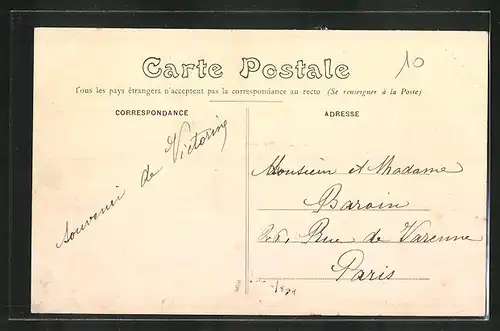 10
Carte Postale
Tous les pays étrangers n'acceptent pas la correspondance au recto (Se renseigner à la Poste)
CORRESPONDANCE
ADRESSE
souvenir de Victorine
Monsieur et Madame
Baroin
26, Rue de Varenne
Paris